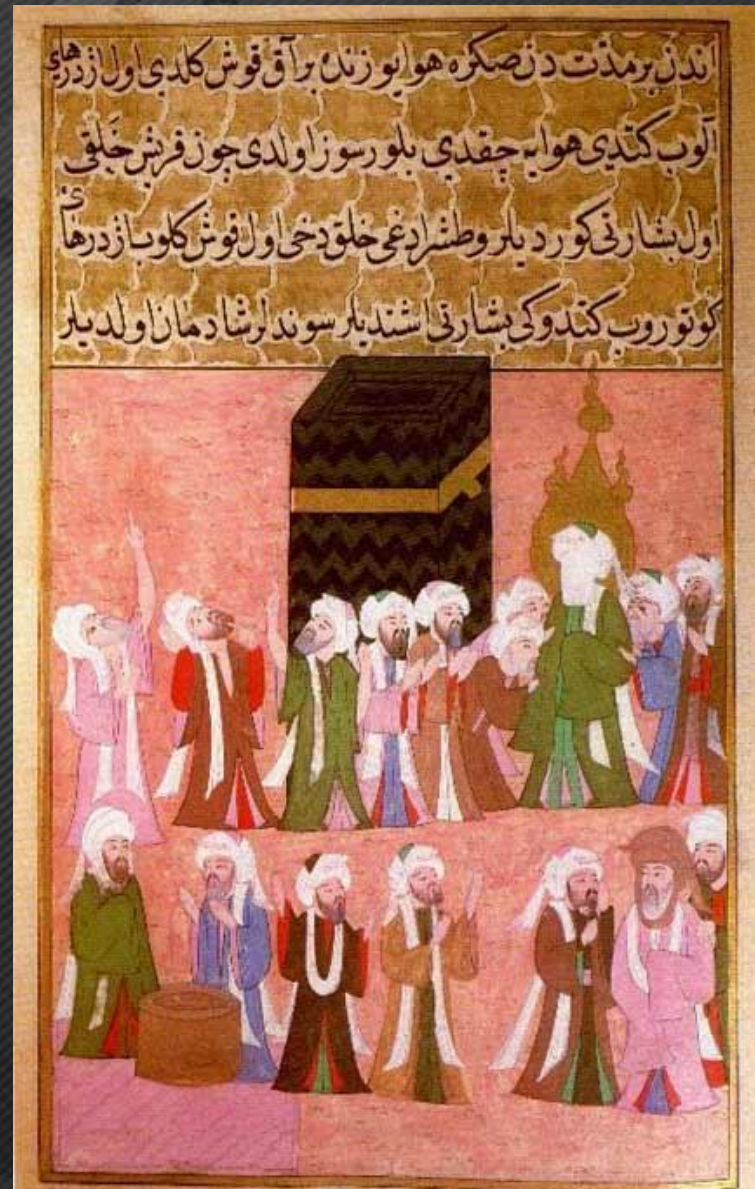 اندن بر مدت دن صكره هوا يوزنده بر آق قوش كلدي اول اژدرهاي
آلوب كتدي هوايه چقدي بلورسوز اولدي چون قريش خلقي
اول بشارتي كورديلر و طشرادغي خلق دخي اول قوش كلوب اژدرهاي
كوتوروب كتدوكي بشارتي اشتديلر سوندلر شادمان اولديلر